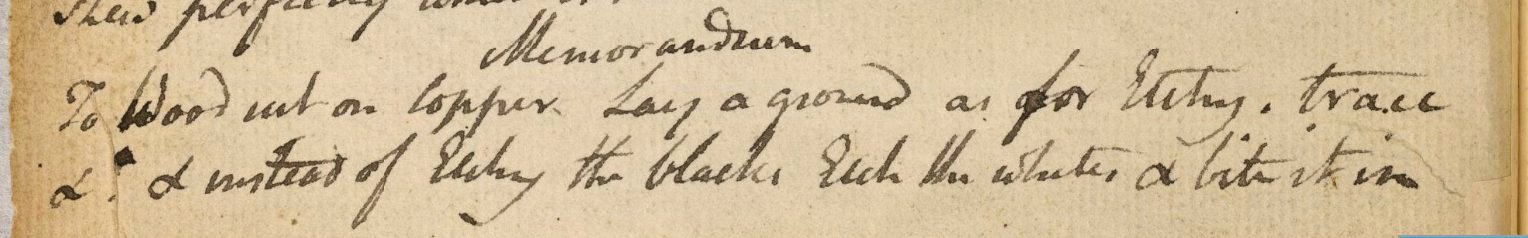 perfectly
Memorandum
To Wood cut on Copper Lay a ground as for Etching. trace
&c & instead of Etching the blacks Etch the whites & bite it in